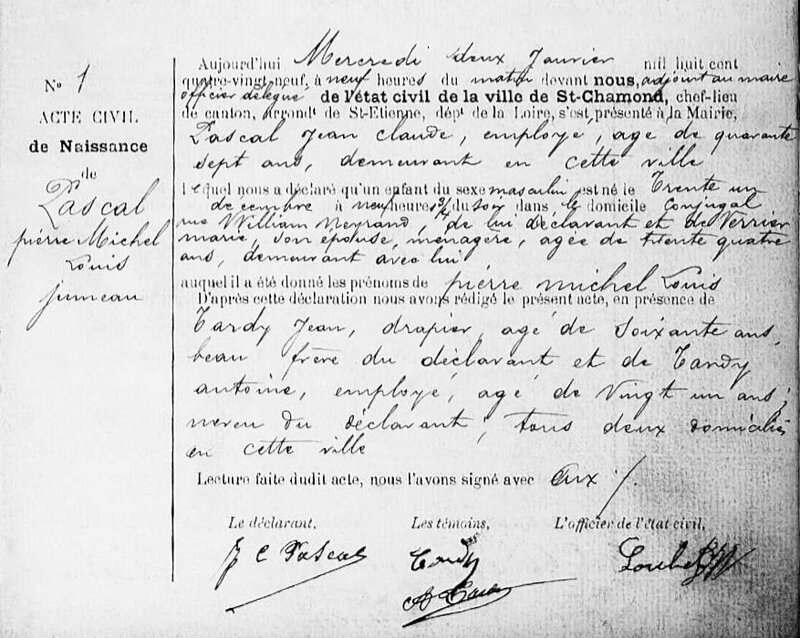 N° 1
ACTE CIVIL
de Naissance
de
Pascal
pierre Michel
Louis
jumeau
Aujourd'hui Mercredi deux Janvier mil huit cent
quatre-vingt-neuf, à neuf heures du matin devant nous, adjoint au maire
officier délégué de l'état civil de la ville de St-Chamond, chef-lieu
de canton, arrondt de St-Etienne, dépt de la Loire, s'est présenté à la Mairie,
Pascal Jean Claude, employé, agé de quarante
sept ans, demeurant en cette ville
lequel nous a déclaré qu'un enfant du sexe masculin est né le Trente un
decembre à neuf heures du soir dans le domicile Conjugal
rue William Neyrand, de lui déclarant et de Verrier
marie, son épouse, ménagère, agée de trente quatre
ans, demeurant avec lui
auquel il a été donné les prénoms de pierre michel Louis
D'après cette déclaration nous avons rédigé le présent acte, en présence de
Tardy Jean, drapier, agé de soixante ans,
beau frère du déclarant et de Tardy
antoine, employé, agé de vingt un ans,
neveu du déclarant, tous deux domiciliés
en cette ville
Lecture faite dudit acte, nous l'avons signé avec Eux /.
Le déclarant, Les témoins, L'officier de l'état civil,
J C Pascal Tardy